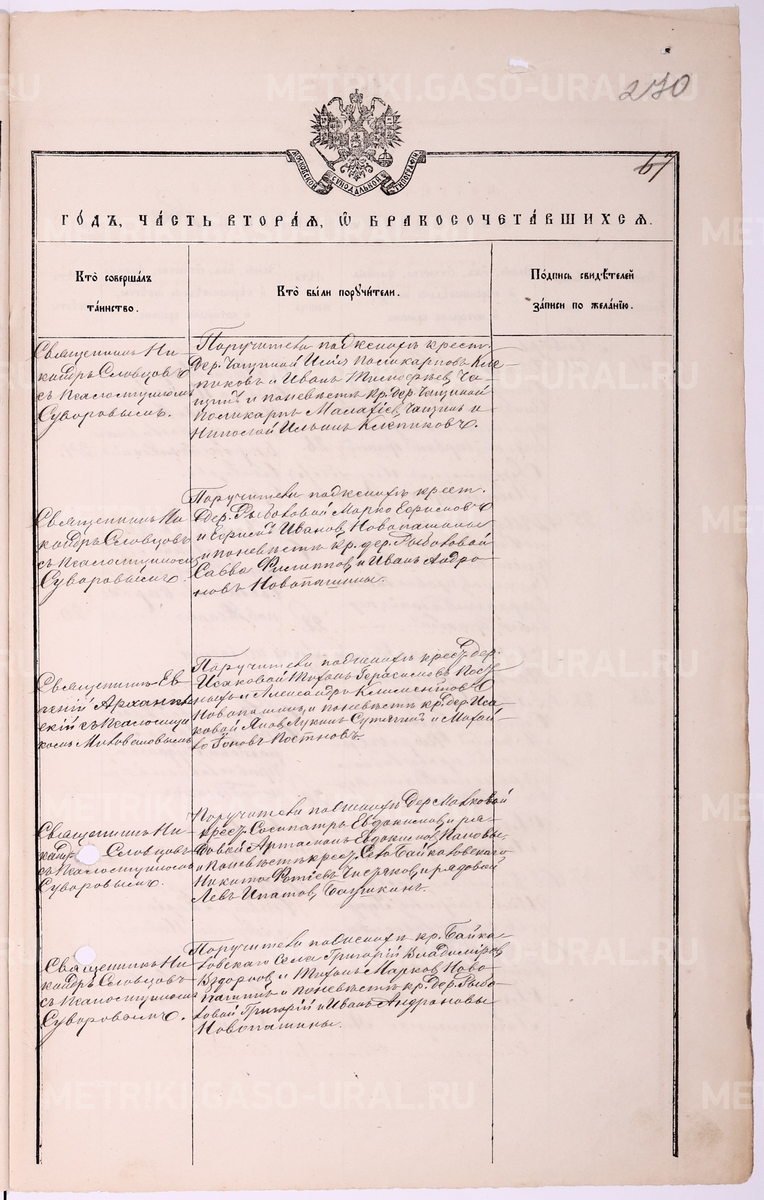 270
67
МОСКОВСКОЙ СѴНОДАЛЬНОЙ ТИПОГРАФІИ
ГО́ДЪ, ЧА́СТЬ ВТОРА́Я, Ѽ БРАКОСОЧЕТА́ВШИХСЯ.
Кто̀ совершалъ
та́инство.
Кто̀ бы́ли поручи́тели.
По́дпись свидѣ́телей
за́писи по жела́нію.
Священникъ Ни-
кандръ Словцовъ
съ Псаломщикомъ
Суворовымъ.
Поручители по женихѣ крест.
дер. Чащиной Илья Поликарповъ Кле-
пиковъ и Иванъ Тимофѣевъ Ча-
щинъ и по невѣстѣ кр. дер. Чащиной
Поликарпъ Малахіевъ Чащинъ и
Ильинъ Клепиковъ.
Священникъ Ни-
кандръ Словцовъ
съ Псаломщикомъ
Суворовымъ.
Поручители по женихѣ крест.
дер. Рыбаковой Марко Ефимовъ
и Иванов Новопашины
и по невѣстѣ кр. дер. Рыбаковой
Савва Филиппов и Иванъ Андро-
новъ Новопашины.
Священникъ Ев-
геній Архангель-
скій съ Псаломщи-
комъ
Поручители по женихѣ крест. дер.
Исаковой Герасимовъ Пост-
ныхъ и Александръ Климентовъ
Новопашинъ и по невѣстѣ кр. дер. Иса-
ковой Яков Лукинъ и
Постновъ.
Священникъ Ни-
кандръ Словцовъ
съ Псаломщикомъ
Суворовымъ.
Поручители по женихѣ дер. Малковой
крест. Сосипатръ Евдокимов и ря-
довой Артамонъ Евдокимов
и по невѣстѣ крест. Села Байкаловскаго
Никита и рядовой
Левъ Ипатов
Священникъ Ни-
кандръ Словцовъ
съ Псаломщикомъ
Суворовымъ.
Поручители по женихѣ кр. Байка-
ловскаго Села Григорій Владиміров
и Марков Ново-
пашинъ и по невѣстѣ кр. дер. Рыба-
ковой Григорій и Иванъ Андроновы
Новопашины.
METRIKI.GASO-URAL.RU